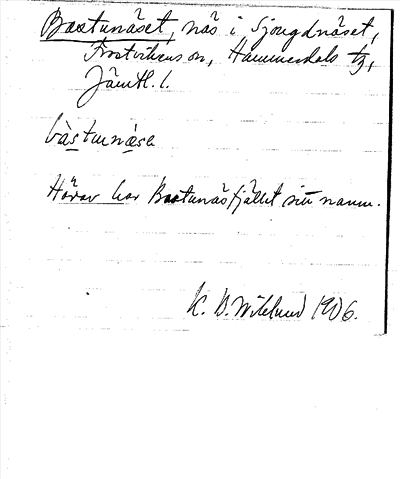 Bastunäset, näs i Sjougdnäset,
Frostvikens sn, Hammerdals tg,
Jämtl. l.
bàstunæsɛ
Härav har Bastunäsfjället sitt namn.
K. B. Wiklund 1906.